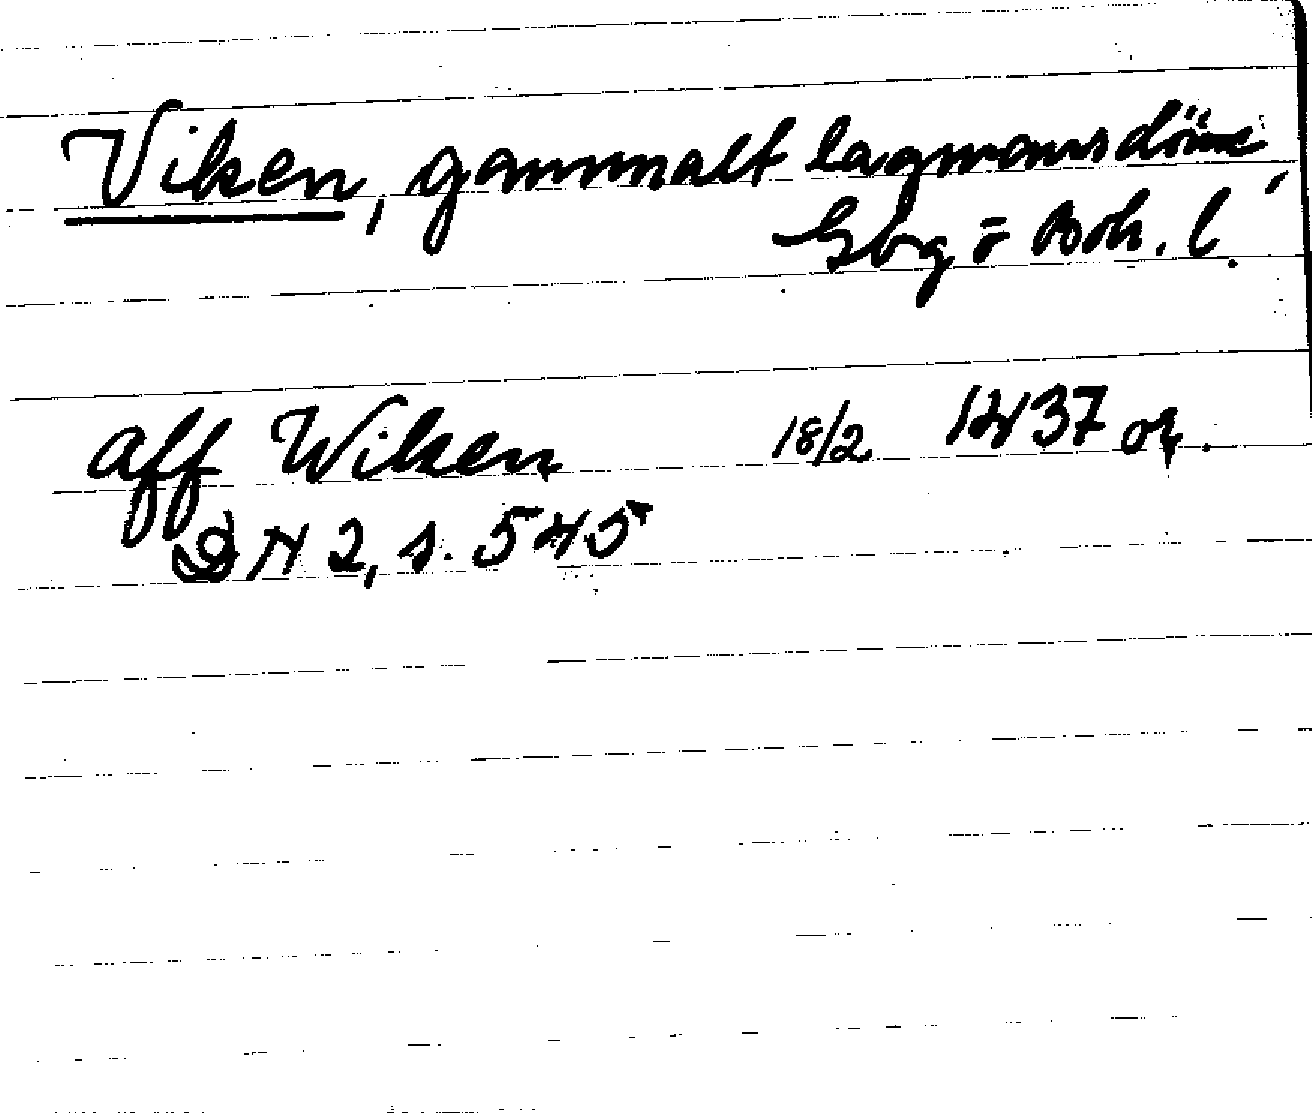 Viken, gammalt lagmansdöme,
Gbg o Boh. l.
aff Wiken 18/2 1437 or.
DN 2, s. 545